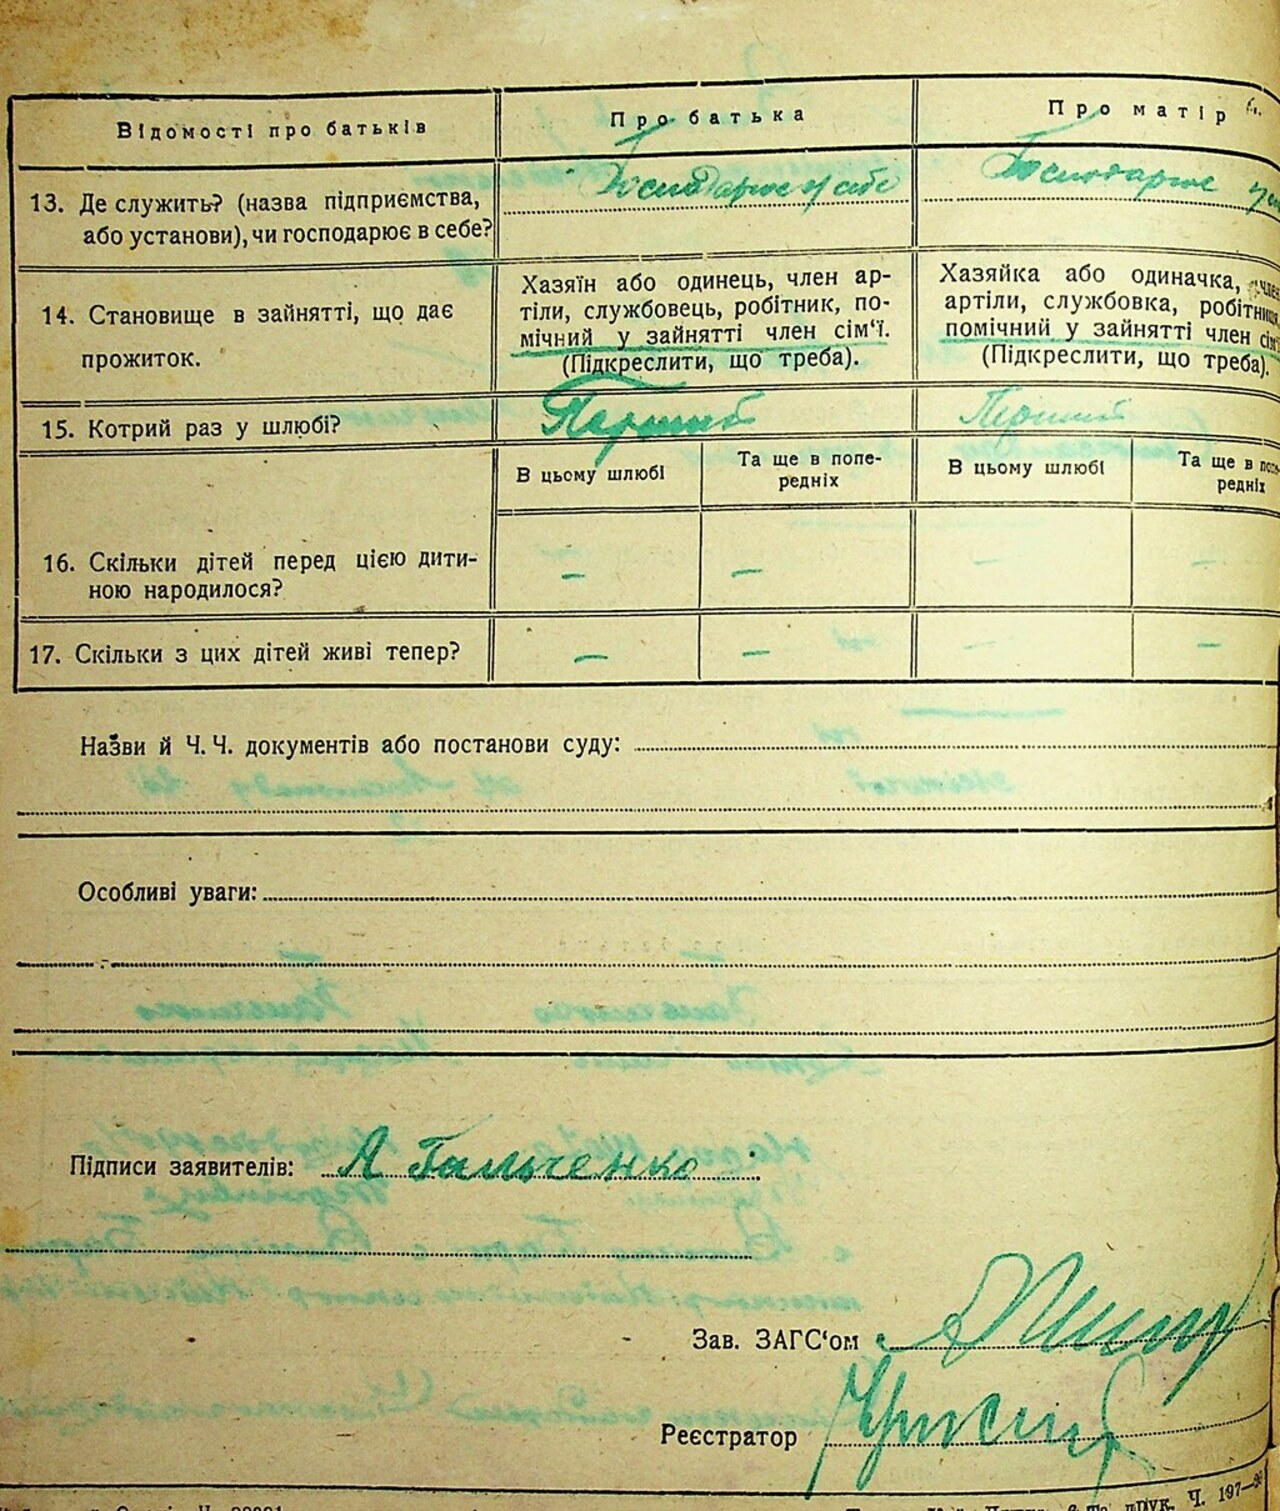 Відомості про батьків
Про батька
Про матір
13. Де служить? (назва підприємства,
або установи), чи господарює в себе?
Господарює у себе
Господарює у
14. Становище в зайнятті, що дає
прожиток.
Хазяїн або одинець, член ар-
тіли, службовець, робітник, по-
мічний у зайнятті член сім‘ї.
(Підкреслити, що треба).
Хазяйка або одиначка, член
артіли, службовка, робітниця,
помічний у зайнятті член сім‘ї
(Підкреслити, що треба).
15. Котрий раз у шлюбі?
Перший
Перший
В цьому шлюбі
Та ще в попе-
редніх
В цьому шлюбі
Та ще в попе-
редніх
16. Скільки дітей перед цією дити-
ною народилося?
– – – –
17. Скільки з цих дітей живі тепер?
– – – –
Назви й Ч. Ч. документів або постанови суду:
Особливі уваги:
Підписи заявителів: А Гальченко
Зав. ЗАГС‘ом
Реєстратор
ДРУК. Ч. 197—